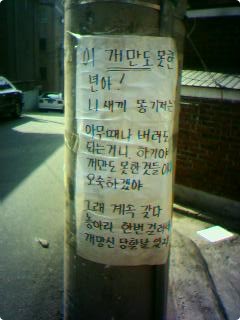 이 개만도 못한
년아!
니새끼 똥기저귀
아무때나 내려도
되는거니 하기야
개만도 못한것들이
오죽하겠야
그래 계속 갖다
놓아라 한번 걸려서
개망신 당할날